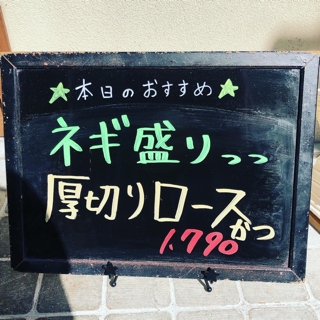 ★本日のおすすめ★
ネギ盛りっっ
厚切りロースかつ
1,790